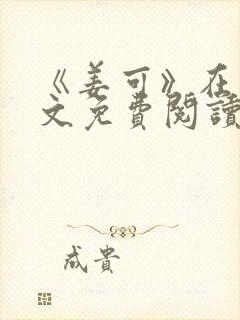 《姜可》在
文免費閱讀
成貴